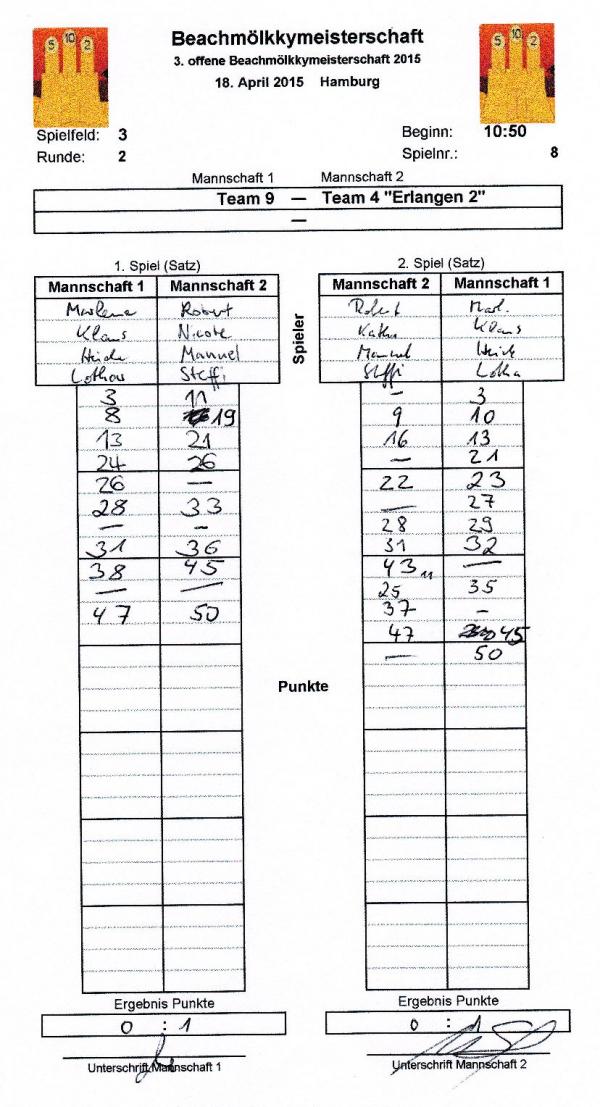 5 10 2
Beachmölkkymeisterschaft
5 10 2
3. offene Beachmölkkymeisterschaft 2015
18. April 2015 Hamburg
Spielfeld: 3
Beginn: 10:50
Runde: 2
Spielnr.: 8
Mannschaft 1 Mannschaft 2
Team 9 — Team 4 "Erlangen 2"
—
1. Spiel (Satz)
2. Spiel (Satz)
Mannschaft 1 Mannschaft 2
Mannschaft 2 Mannschaft 1
Spieler
Marlene Robert
Klaus Nicole
Manuel
Steffi
Robert
Klaus
3 11
8 19
13 21
24 26
26 —
28 33
— –
31 36
38 45
— —
47 50
– 3
9 10
16 13
— 21
22 23
— 27
28 29
31 32
43 11 —
25 35
37 –
47 45
— 50
Punkte
Ergebnis Punkte
Ergebnis Punkte
0 : 1
0 : 1
Unterschrift Mannschaft 1
Unterschrift Mannschaft 2